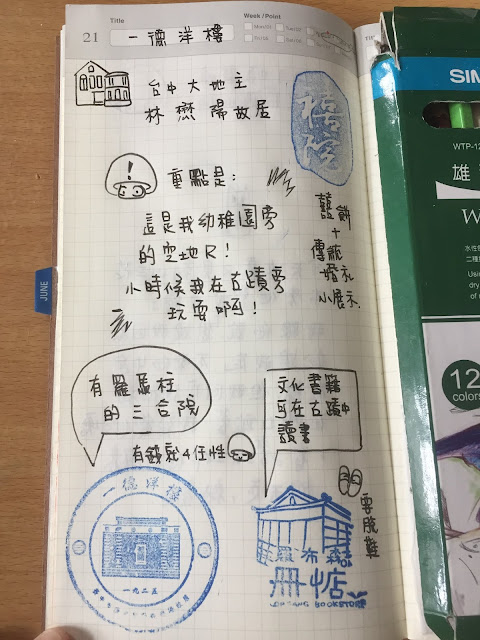 Title
Week / Point
21
一德洋樓
台中大地主
林懋陽故居
重點是:
這是我幼稚園旁
的空地R!
小時候我在古蹟旁
玩耍啊!
囍餅
+
傳統
婚礼
小展示.
JUNE
有羅馬柱
的三合院
有錢就4任性
文化書籍
可在古蹟中
讀書
要脫鞋
一德洋樓
一九二五
羅布森
冊惦
BOOKSTORE
SIM
WTP-12
雄
W
12
colors